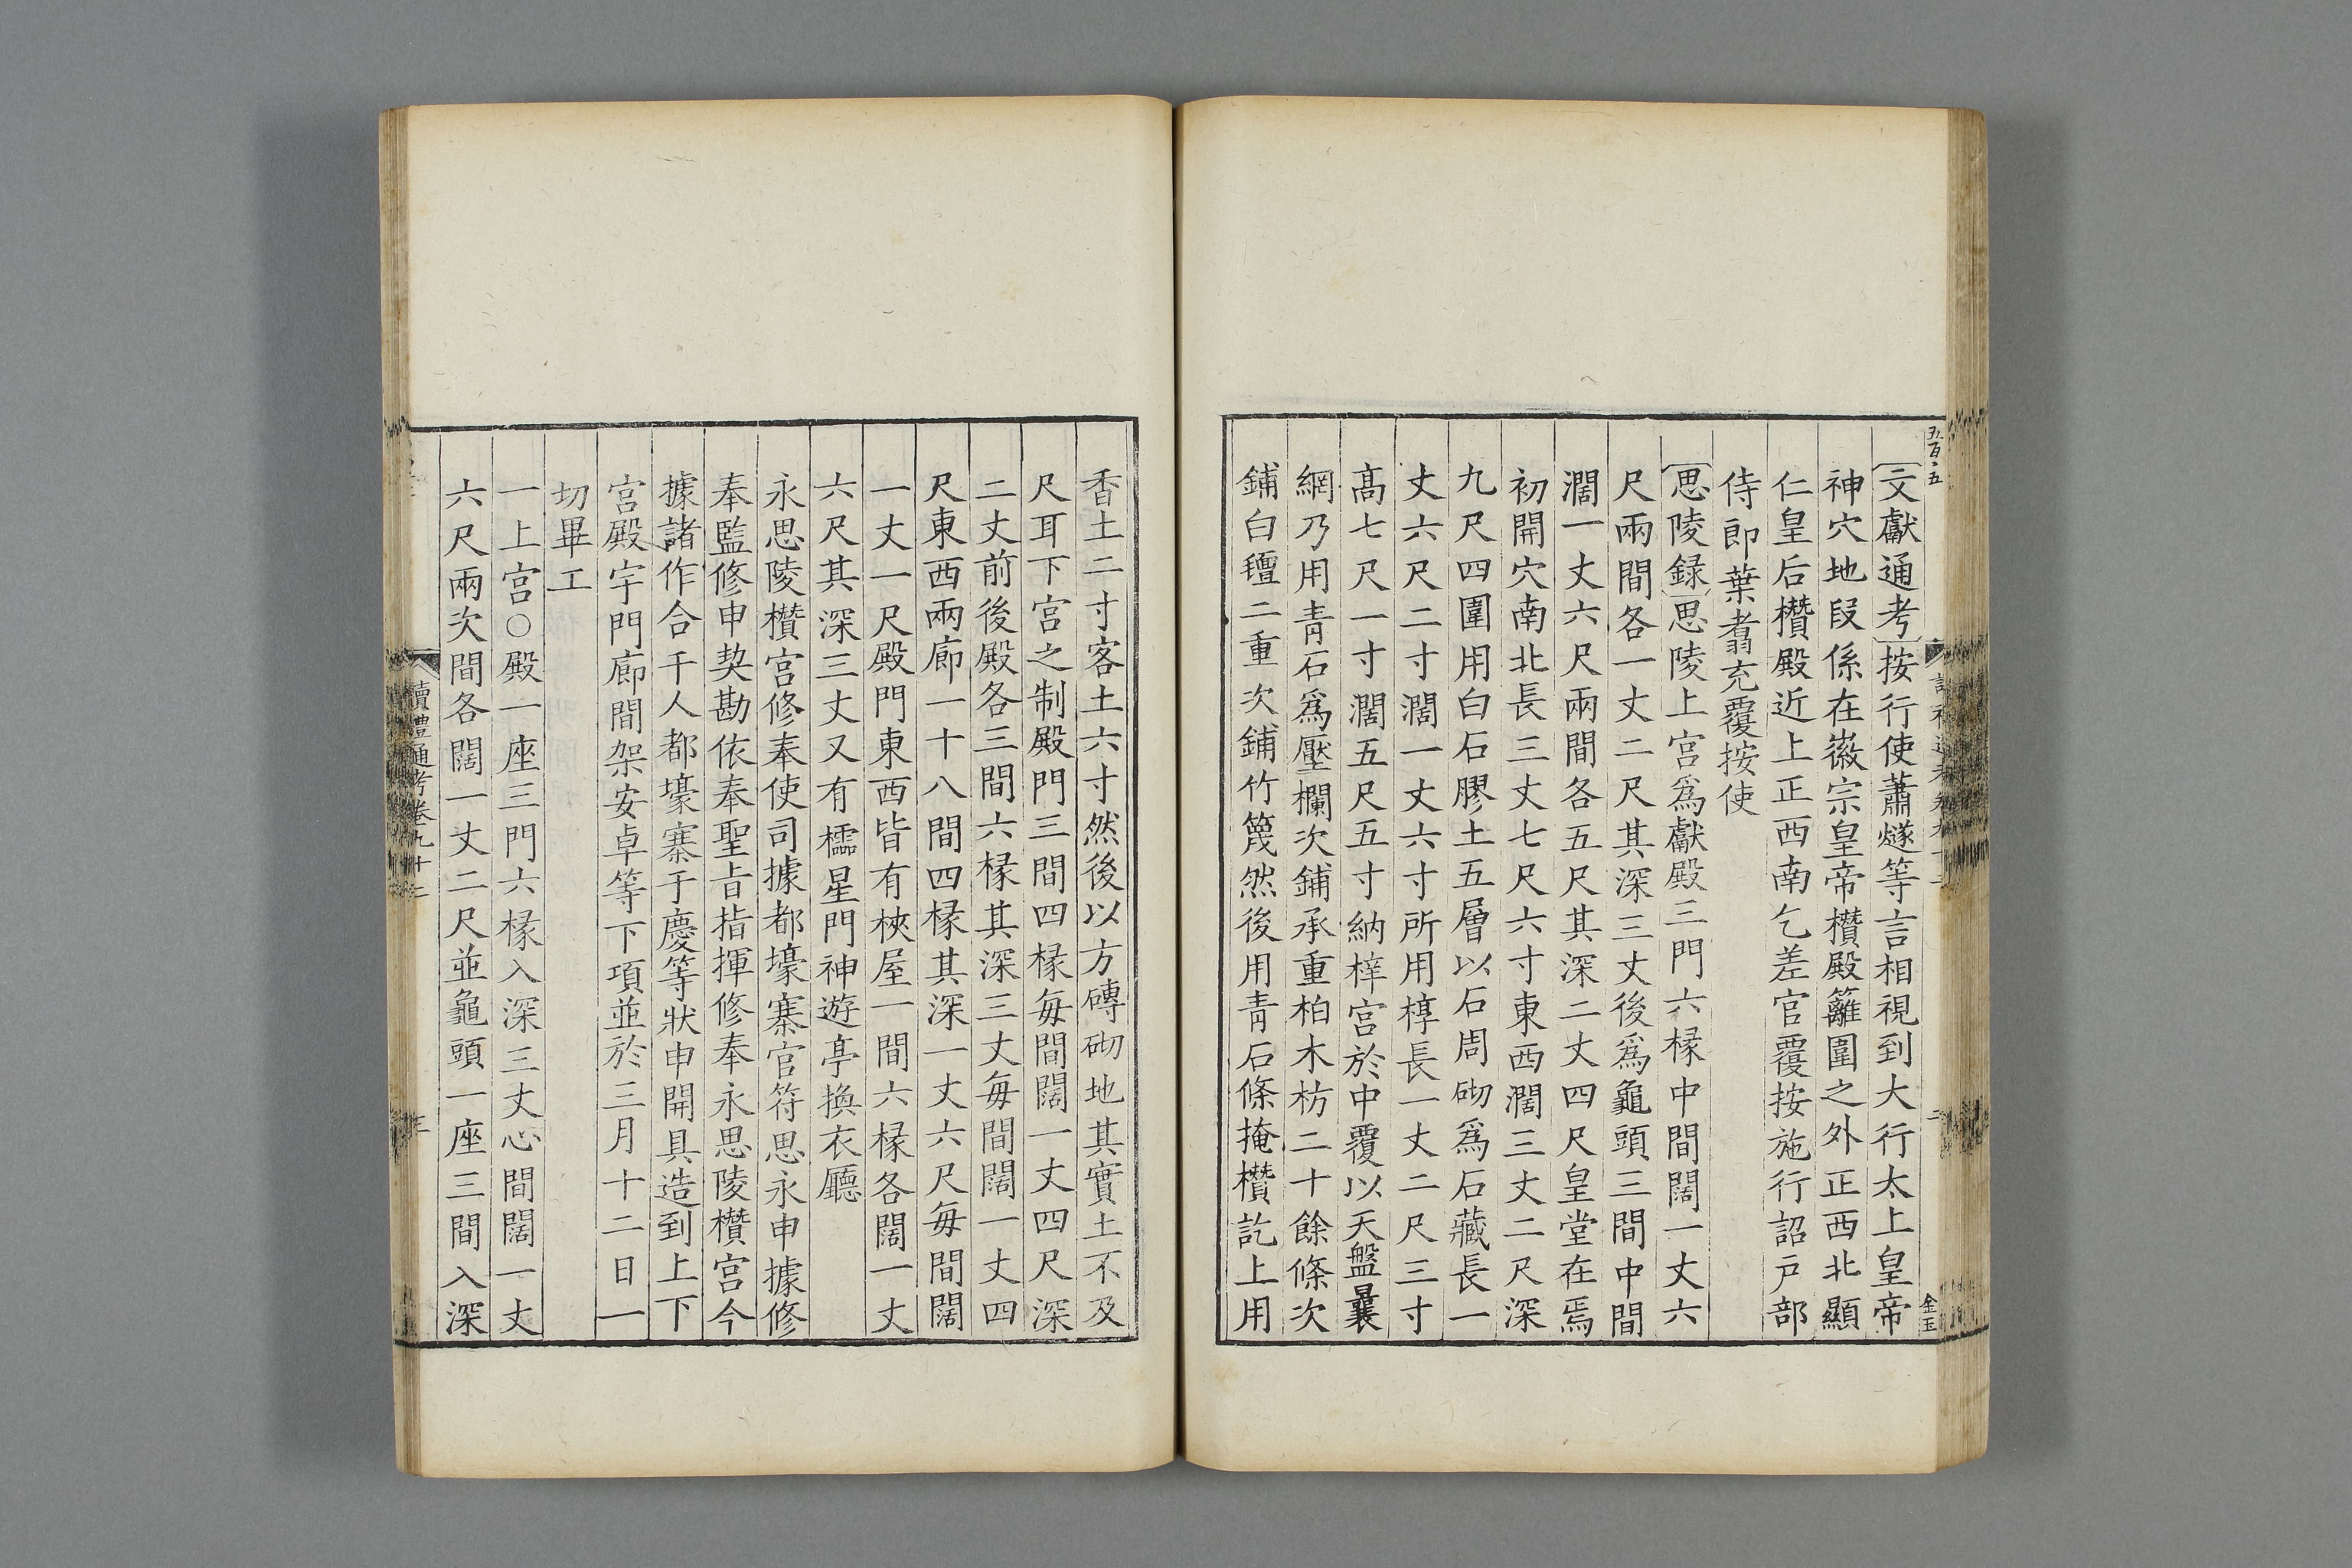 五百五
文獻通考按行使蕭燧等言相視到大行太上皇帝
神穴地段係在徽宗皇帝欑殿籬圍之外正西北顯
仁皇后欑殿近上正西南乞差官覆按施行詔戸部
侍郎葉翥充覆按使
思陵録思陵上宮爲獻殿三門六椽中間闊一丈六
尺兩間各一丈二尺其深三丈後爲龜頭三間中間
濶一丈六尺兩間各五尺其深二丈四尺皇堂在焉
初開穴南北長三丈七尺六寸東西濶三丈二尺深
九尺四圍用白石膠土五層以石周砌爲石藏長一
丈六尺二寸濶一丈六寸所用椁長一丈二尺三寸
髙七尺一寸濶五尺五寸納梓宮於中覆以天盤囊
網乃用青石爲壓欄次鋪承重柏木枋二十餘條次
鋪白氊二重次鋪竹篾然後用青石條掩欑訖上用
二
金玉
香土二寸客土六寸然後以方磚砌地其實土不及
尺耳下宮之制殿門三間四椽每間闊一丈四尺深
二丈前後殿各三間六椽其深三丈每間闊一丈四
尺東西兩廊一十八間四椽其深一丈六尺每間闊
一丈一尺殿門東西皆有挾屋一間六椽各闊一丈
六尺其深三丈又有櫺星門神遊亭換衣廳
永思陵欑宮修奉使司據都壕寨官符思永申據修
奉監修申契勘依奉聖旨指揮修奉永思陵欑宮今
據諸作合干人都壕寨于慶等狀申開具造到上下
宮殿宇門廊間架安卓等下項並於三月十二日一
切畢工
一上宮○殿一座三門六椽入深三丈心間闊一丈
六尺兩次間各闊一丈二尺並龜頭一座三間入深
讀禮通考卷九十二
三